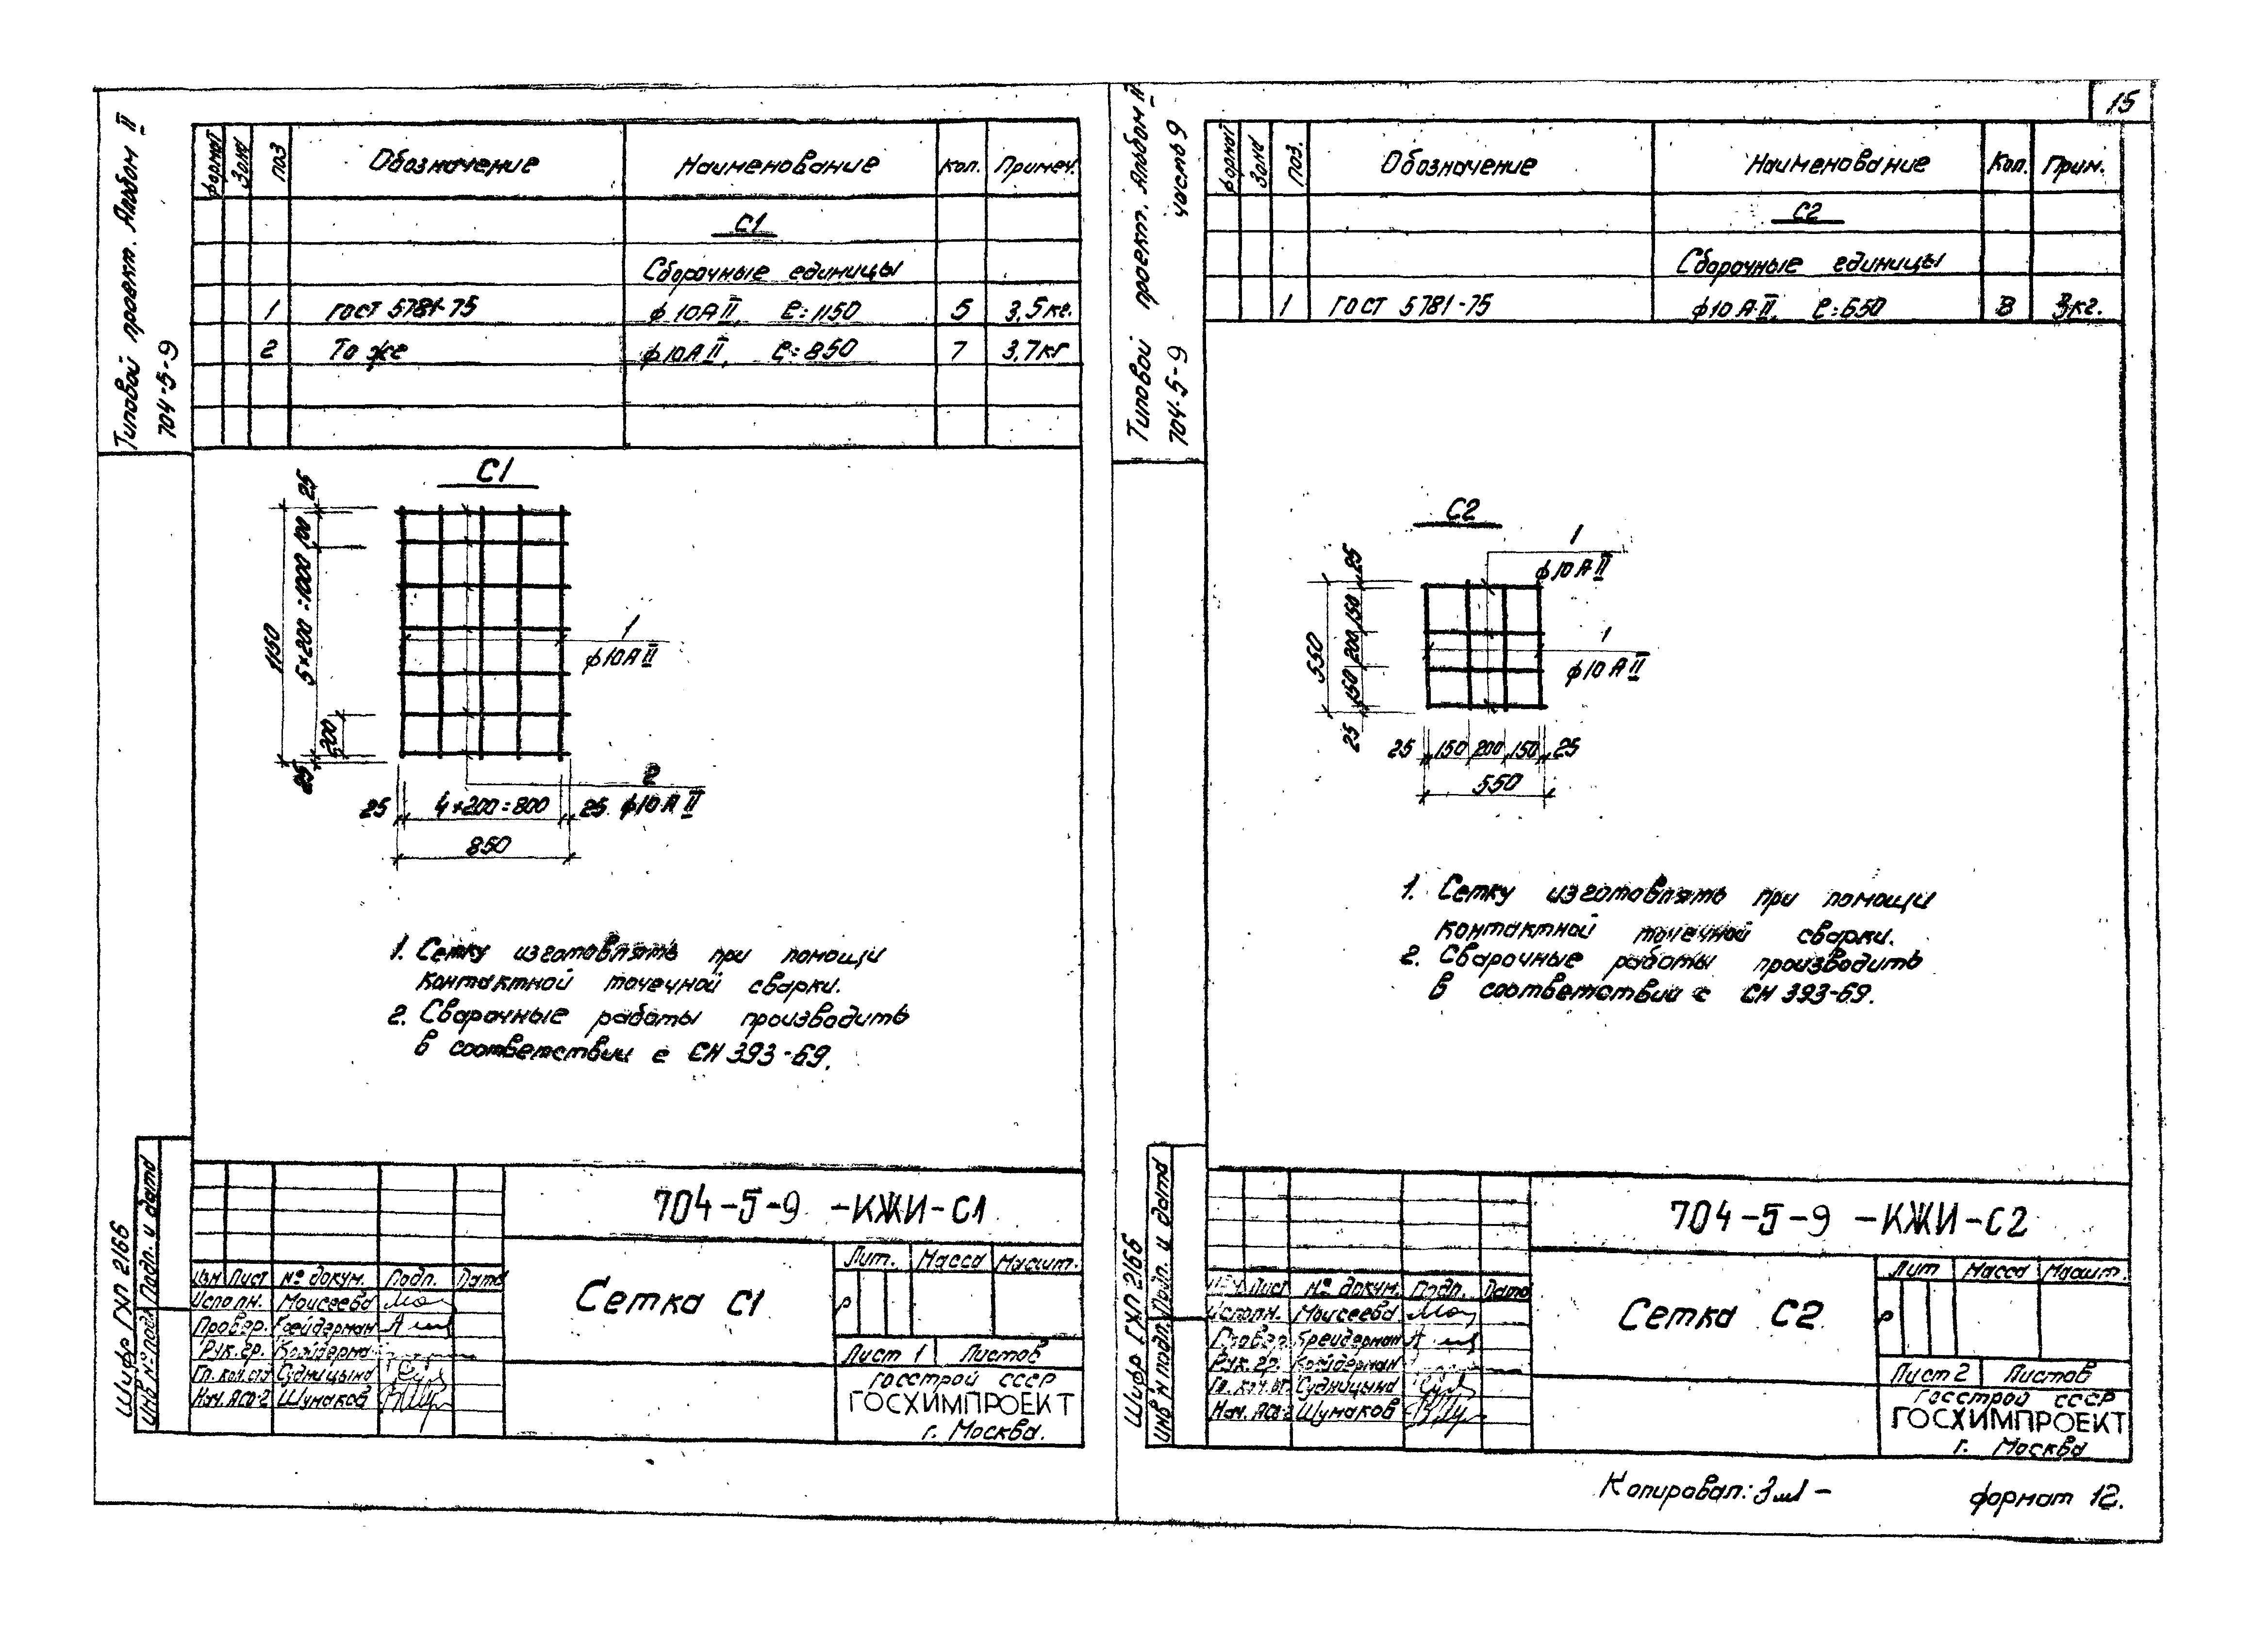 Типовой проект. Альбом II
704-5-9
формат Зона поз Обозначение Наименование Кол. Примеч.
С1
Сборочные единицы
1 ГОСТ 5781-75 ф10АII, ℓ=1150 5 3,5кг.
2 То же ф10АII, ℓ=850 7 3,7кг
С1
25
100
5×200=1000
1150
200
25
1
ф10АII
2
ф10АII
25 4×200=800 25
850
1. Сетку изготовлять при помощи
контактной точечной сварки.
2. Сварочные работы производить
в соответствии с СН 393-69.
Шифр ГХП 2166
Инв № подл. Подп. и дата
704-5-9 -КЖИ-С1
Сетка С1
Лит. Масса Масшт.
Р
Лист 1 Листов
Госстрой СССР
ГОСХИМПРОЕКТ
г. Москва.
Изм Лист № докум. Подп. Дата
Исполн. Моисеева
Провер. Крейдерман
Рук. гр.
Гл. кон. Судницына
Нач. АСО-2 Шумаков
15
Типовой проект. Альбом II
704-5-9 часть 9
формат Зона поз. Обозначение Наименование Кол. Прим.
С2
Сборочные единицы
1 ГОСТ 5781-75 ф10АII, ℓ=550 8 3кг.
С2
1
ф10АII
1
ф10АII
25
150
200
150
25
550
25 150 200 150 25
550
1. Сетку изготовлять при помощи
контактной точечной сварки.
2. Сварочные работы производить
в соответствии с СН 393-69.
Шифр ГХП 2166
Инв № подл. Подп. и дата
704-5-9 -КЖИ-С2
Сетка С2
Лит Масса Масшт.
Р
Лист 2 Листов
Госстрой СССР
ГОСХИМПРОЕКТ
г. Москва
Изм Лист № докум. Подп. Дата
Исполн. Моисеева
Провер Крейдерман
Рук. гр. Крейдерман
Гл. кон. Судницына
Нач. АСО-2 Шумаков
Копировал:
формат 12.